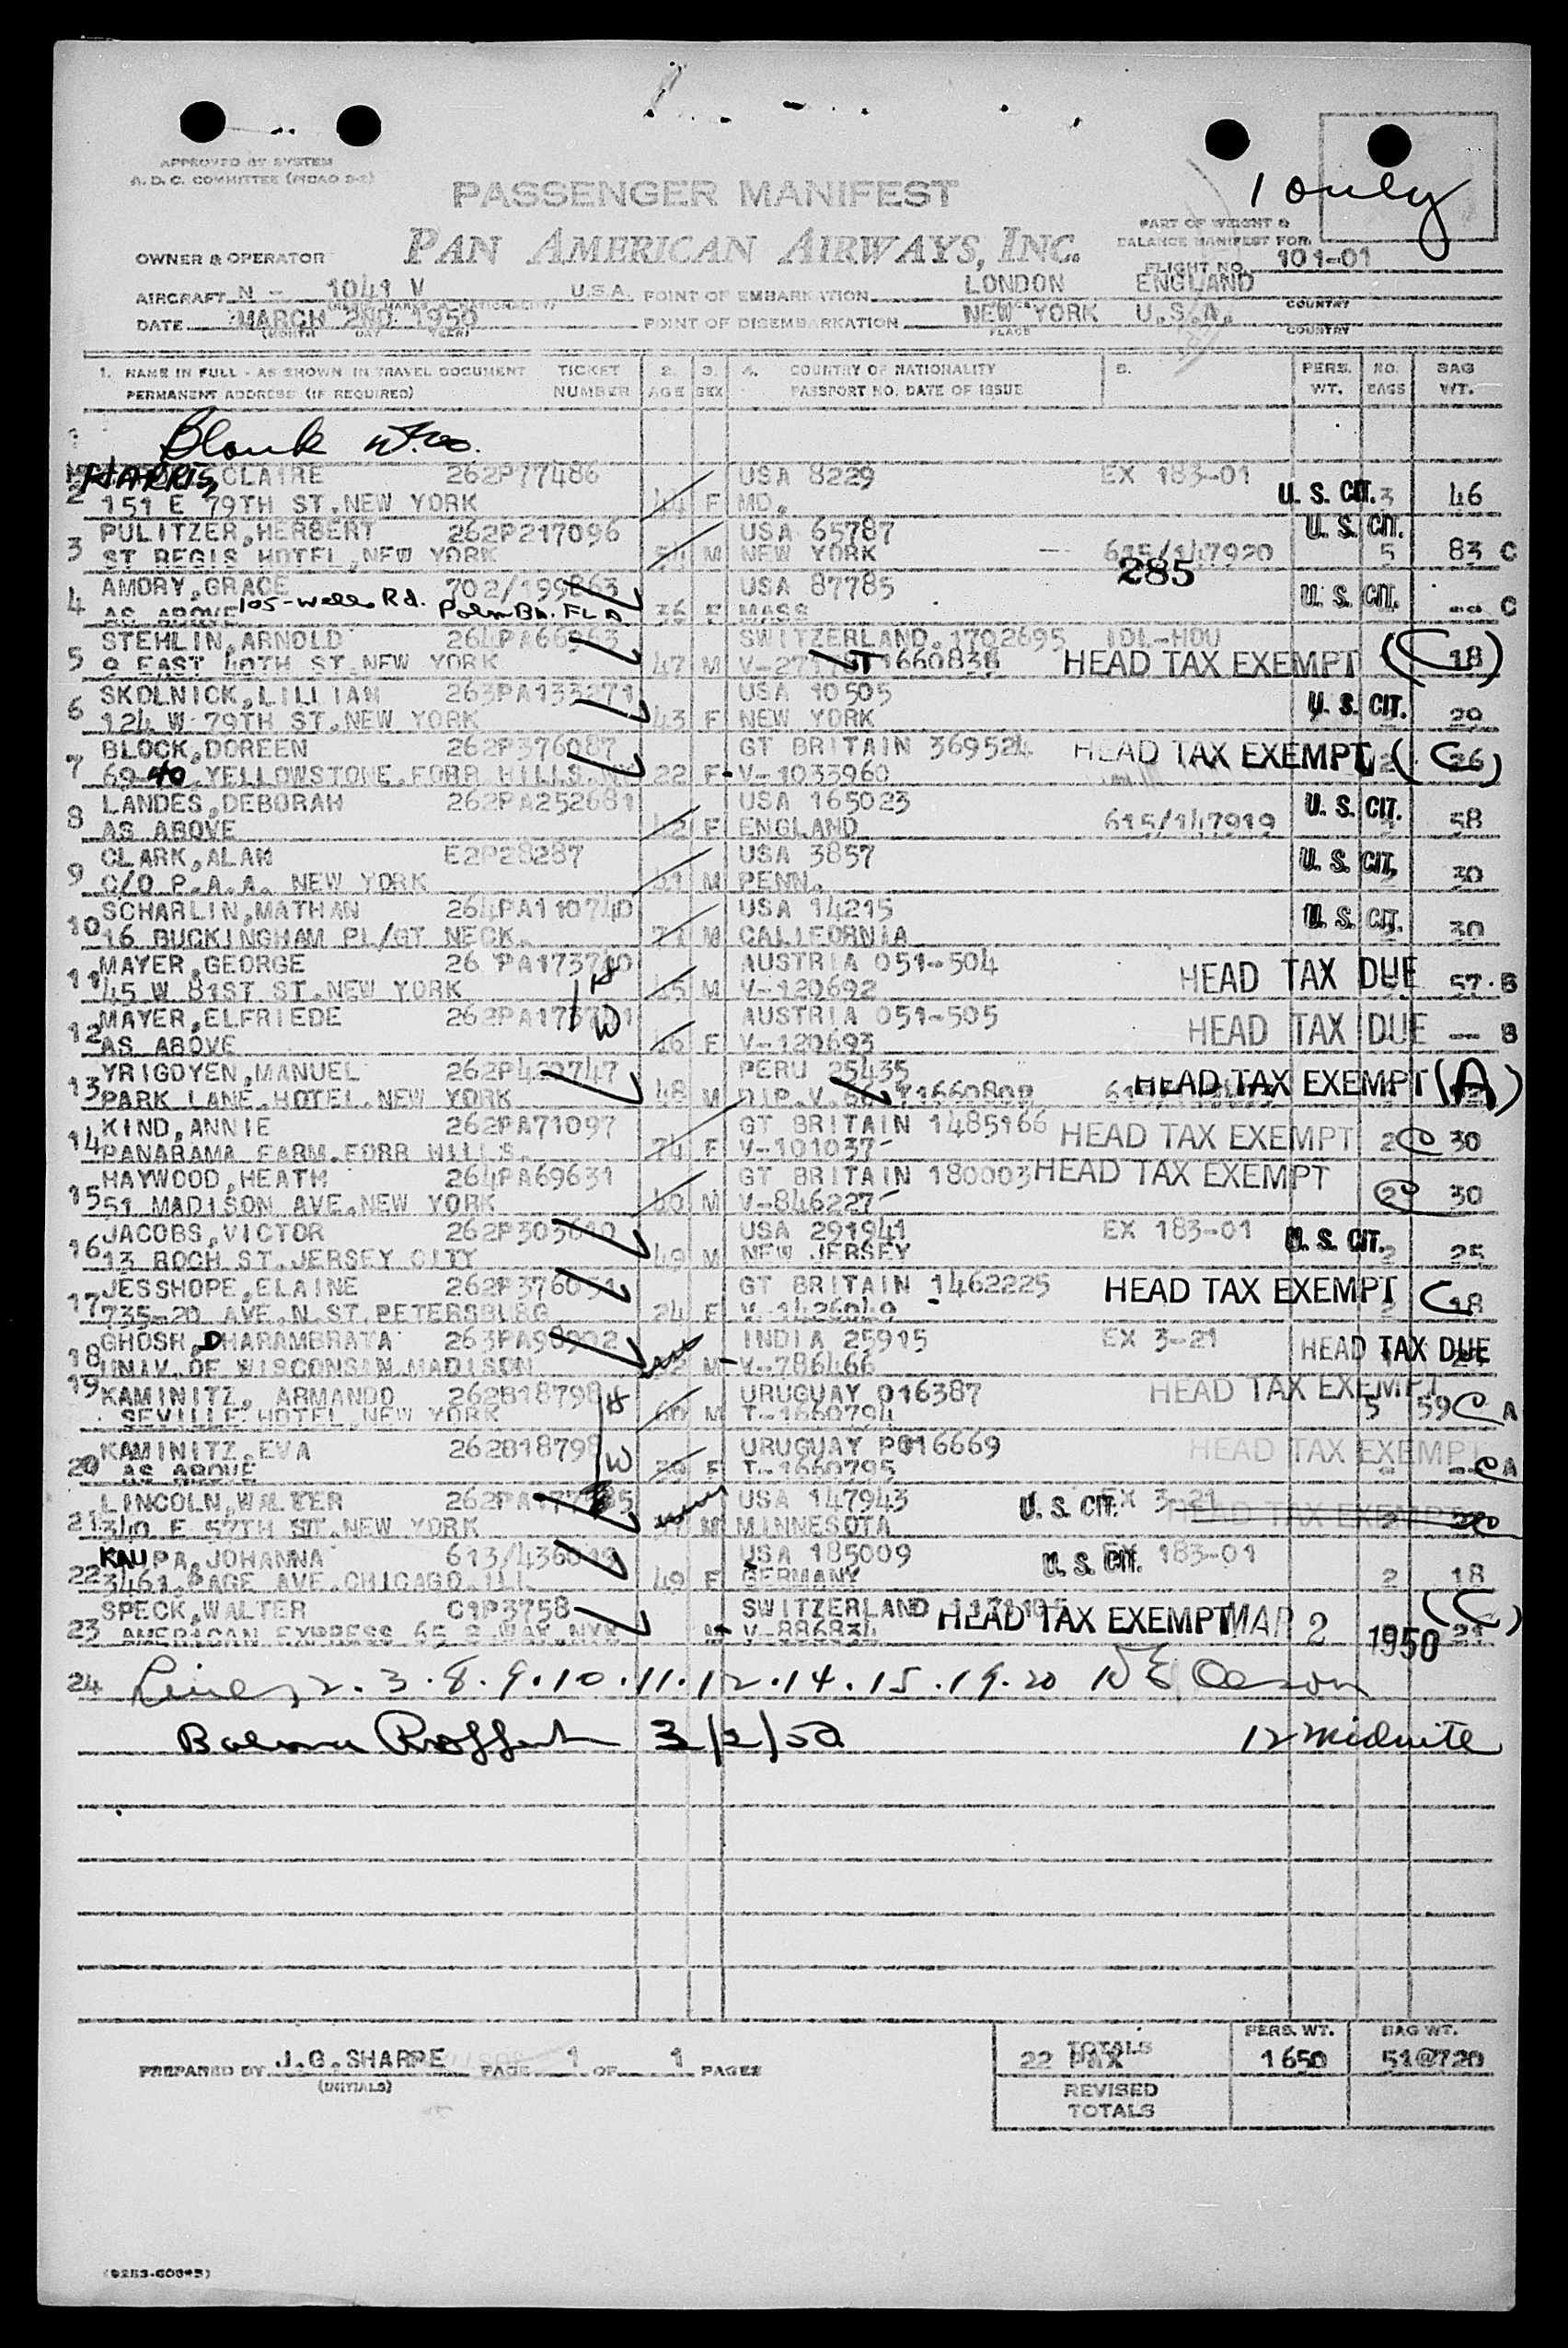 APPROVED BY SYSTEM
A.D.C. COMMITTEE
1 only
PASSENGER MANIFEST
PAN AMERICAN AIRWAYS, INC.
PART OF WEIGHT &
BALANCE MANIFEST FOR
OWNER & OPERATOR
FLIGHT NO. 101-01
AIRCRAFT N - 1041 V U.S.A. POINT OF EMBARKATION LONDON ENGLAND
COUNTRY
DATE MARCH 2ND 1950 POINT OF DISEMBARKATION NEW YORK U.S.A.
(MONTH DAY YEAR) PLACE COUNTRY
1. NAME IN FULL - AS SHOWN IN TRAVEL DOCUMENT TICKET 2. 3. 4. COUNTRY OF NATIONALITY 5. PERS. NO. BAG
PERMANENT ADDRESS (IF REQUIRED) NUMBER AGE SEX PASSPORT NO. DATE OF ISSUE WT. BAGS WT.
Blank
HARRIS, CLAIRE 262P77486 USA 8229 EX 183-01
2 151 E 79TH ST. NEW YORK 44 F MD. U. S. CIT. 3 46
PULITZER, HERBERT 262P217096 USA 65787 U. S. CIT.
3 ST REGIS HOTEL, NEW YORK 54 M NEW YORK 615/147920 5 83 C
AMORY, GRACE 702/199863 USA 87785 285
4 AS ABOVE 105-Wells Rd. Palm Bh. FLA 36 F MASS U. S. CIT. C
STEHLIN, ARNOLD 264PA66963 SWITZERLAND. 1702695 IDL-HOU
5 9 EAST 40TH ST. NEW YORK 47 M T1660838 HEAD TAX EXEMPT (C 18)
SKOLNICK, LILLIAN 263PA133271 USA 10505
6 124 W 79TH ST. NEW YORK 43 F NEW YORK U. S. CIT. 29
BLOCK, DOREEN 262P376087 GT BRITAIN 369524 HEAD TAX EXEMPT
7 69-40 YELLOWSTONE. FORR HILLS. NY 22 F V-1033960 2 (C 26)
LANDES, DEBORAH 262PA252681 USA 165023 U. S. CIT.
8 AS ABOVE 42 F ENGLAND 615/147919 58
CLARK, ALAN E2P28287 USA 3857 U. S. CIT.
9 C/O P.A.A. NEW YORK M PENN. 30
SCHARLIN, NATHAN 264PA110740 USA 14215 U. S. CIT.
10 16 BUCKINGHAM PL/GT NECK. M CALIFORNIA 30
MAYER, GEORGE PA173710 H AUSTRIA 051-504 HEAD TAX DUE
11 45 W 81ST ST. NEW YORK M V-120692 57 B
MAYER, ELFRIEDE W AUSTRIA 051-505 HEAD TAX DUE
12 AS ABOVE F V-120693 -- B
YRIGOYEN, MANUEL 262P420747 PERU 25435 HEAD TAX EXEMPT (A)
13 PARK LANE. HOTEL. NEW YORK 48 M
KIND, ANNIE 262PA71097 GT BRITAIN 1485166 HEAD TAX EXEMPT
14 PANARAMA FARM. FORR HILLS. 74 F V-101037 2 C 30
HAYWOOD, HEATH 264PA69631 GT BRITAIN 180003 HEAD TAX EXEMPT
15 51 MADISON AVE. NEW YORK M V-846227 2 C 30
JACOBS, VICTOR 262P303610 USA 291941 EX 183-01
16 13 ROCH ST. JERSEY CITY 49 M NEW JERSEY U. S. CIT. 2 25
JESSHOPE, ELAINE 262P376091 GT BRITAIN 1462225 HEAD TAX EXEMPT
17 735-20 AVE. N. ST. PETERSBURG 24 F V-1426049 2 C 18
GHOSH, DHARAMBRATA 263PA98902 INDIA 25915 EX 3-21 HEAD TAX DUE
18 UNIV. OF WISCONSIN. MADISON M V-786466
19 KAMINITZ, ARMANDO 262B18798 H URUGUAY 016387 HEAD TAX EXEMPT
SEVILLE HOTEL. NEW YORK 60 M T-1660794 5 59 C A
KAMINITZ, EVA 262B18798 W URUGUAY P016669 HEAD TAX EXEMPT
20 AS ABOVE F T-1660795 C A
LINCOLN, WALTER USA 147943 U. S. CIT. EX 3-21 HEAD TAX EXEMPT
21 340 E 57TH ST. NEW YORK M MINNESOTA 2
KAUPA, JOHANNA USA 185009 U. S. CIT. EX 183-01
22 3461 PAGE AVE. CHICAGO. ILL 49 F GERMANY 2 18
SPECK, WALTER C1P3758 SWITZERLAND HEAD TAX EXEMPT MAR 2 1950 (C)
23 AMERICAN EXPRESS 65 B WAY. NYK M V-886834 21
24 Lines 2.3.8.9.10.11.12.14.15.19.20
3/2/50 12 Midnite
PREPARED BY J.G. SHARPE PAGE 1 OF 1 PAGES
(INITIALS)
TOTALS PERS. WT. BAG WT.
22 PAX 1650 51@720
REVISED
TOTALS